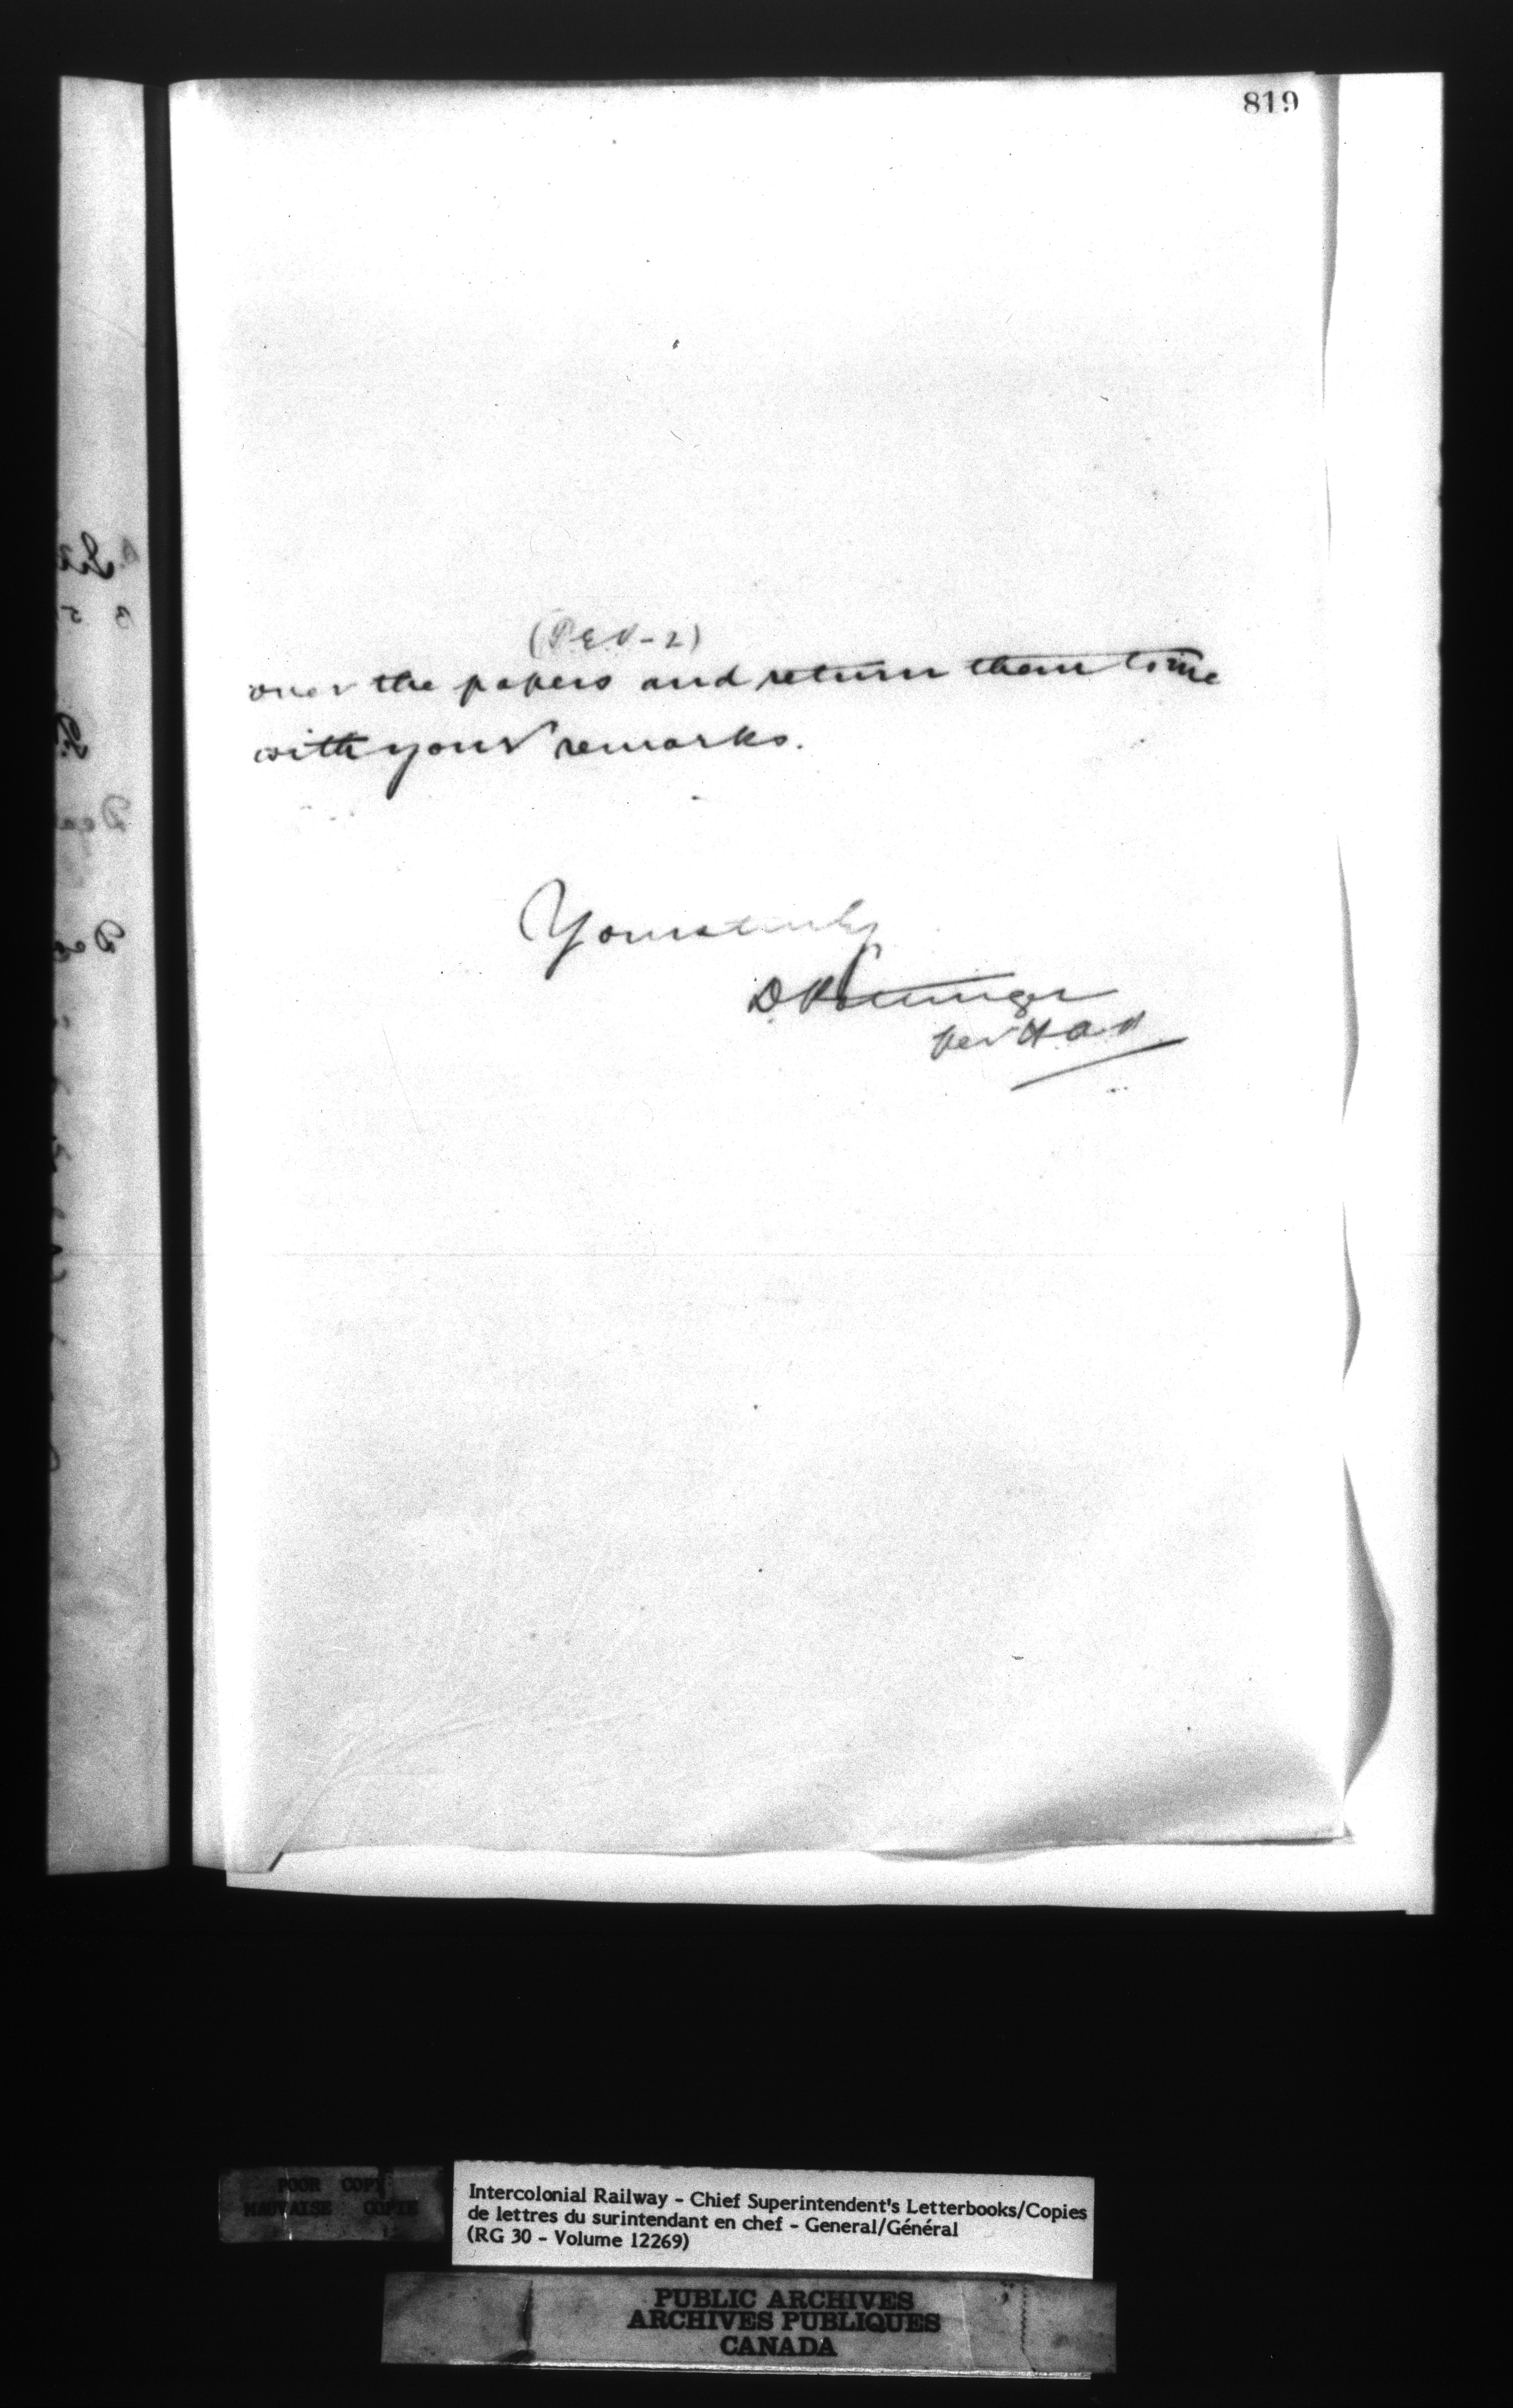 819
over the papers and return them to me
with your remarks.
Yours truly
D. Pottinger
per
POOR COPY
MAUVAISE COPIE
Intercolonial Railway - Chief Superintendent's Letterbooks/Copies
de lettres du surintendant en chef - General/Général
(RG 30 - Volume 12269)
PUBLIC ARCHIVES
ARCHIVES PUBLIQUES
CANADA